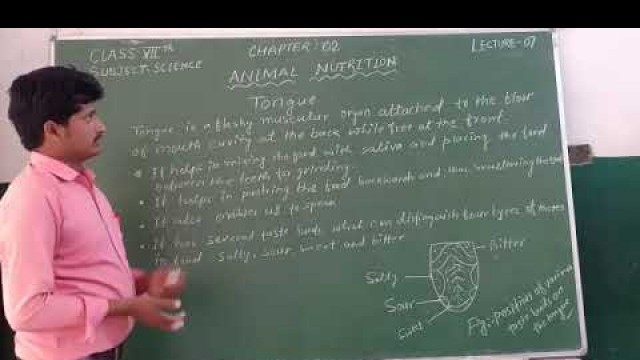 CLASS VII TH
SUBJECT-SCIENCE
CHAPTER:02
LECTURE-07
ANIMAL NUTRITION
Tongue
Tongue is a fleshy muscular organ attached to the floor
of mouth at the back while free at the front.
It helps in mixing the food with saliva and placing the food
between the teeth for grinding.
It helps in pushing the food backwards and then the
It also enables us to speak
It has several taste buds which can distinguish four types of
in food salty, sour, sweet and bitter
Bitter
Salty
Sour
Sweet
Fig:- position of various
taste buds on
the tongue